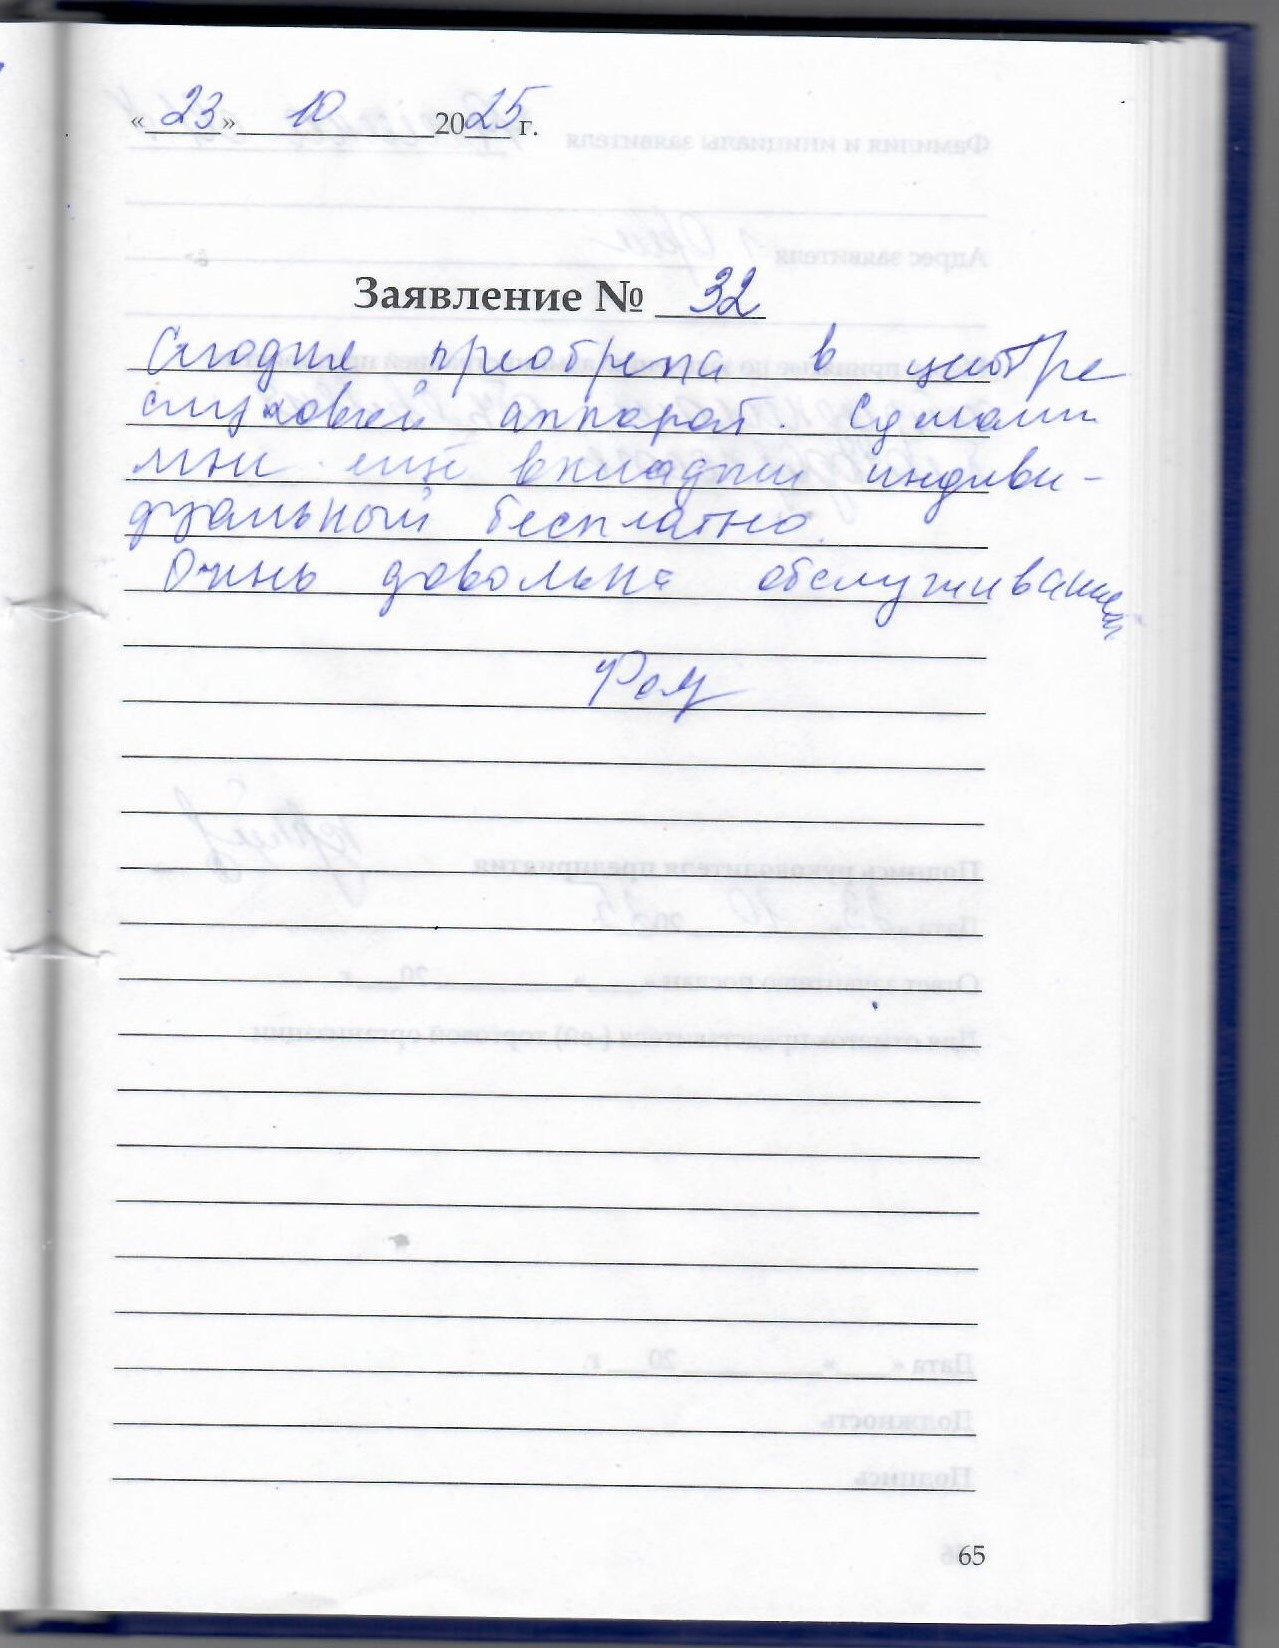 «23» 10 2025 г.
Заявление № 32
Сегодня преобрела в центре
слуховой аппарат. Сделали
мне ещё вкладыш индиви-
дуальный бесплатно.
Очень довольна обслуживанием
65